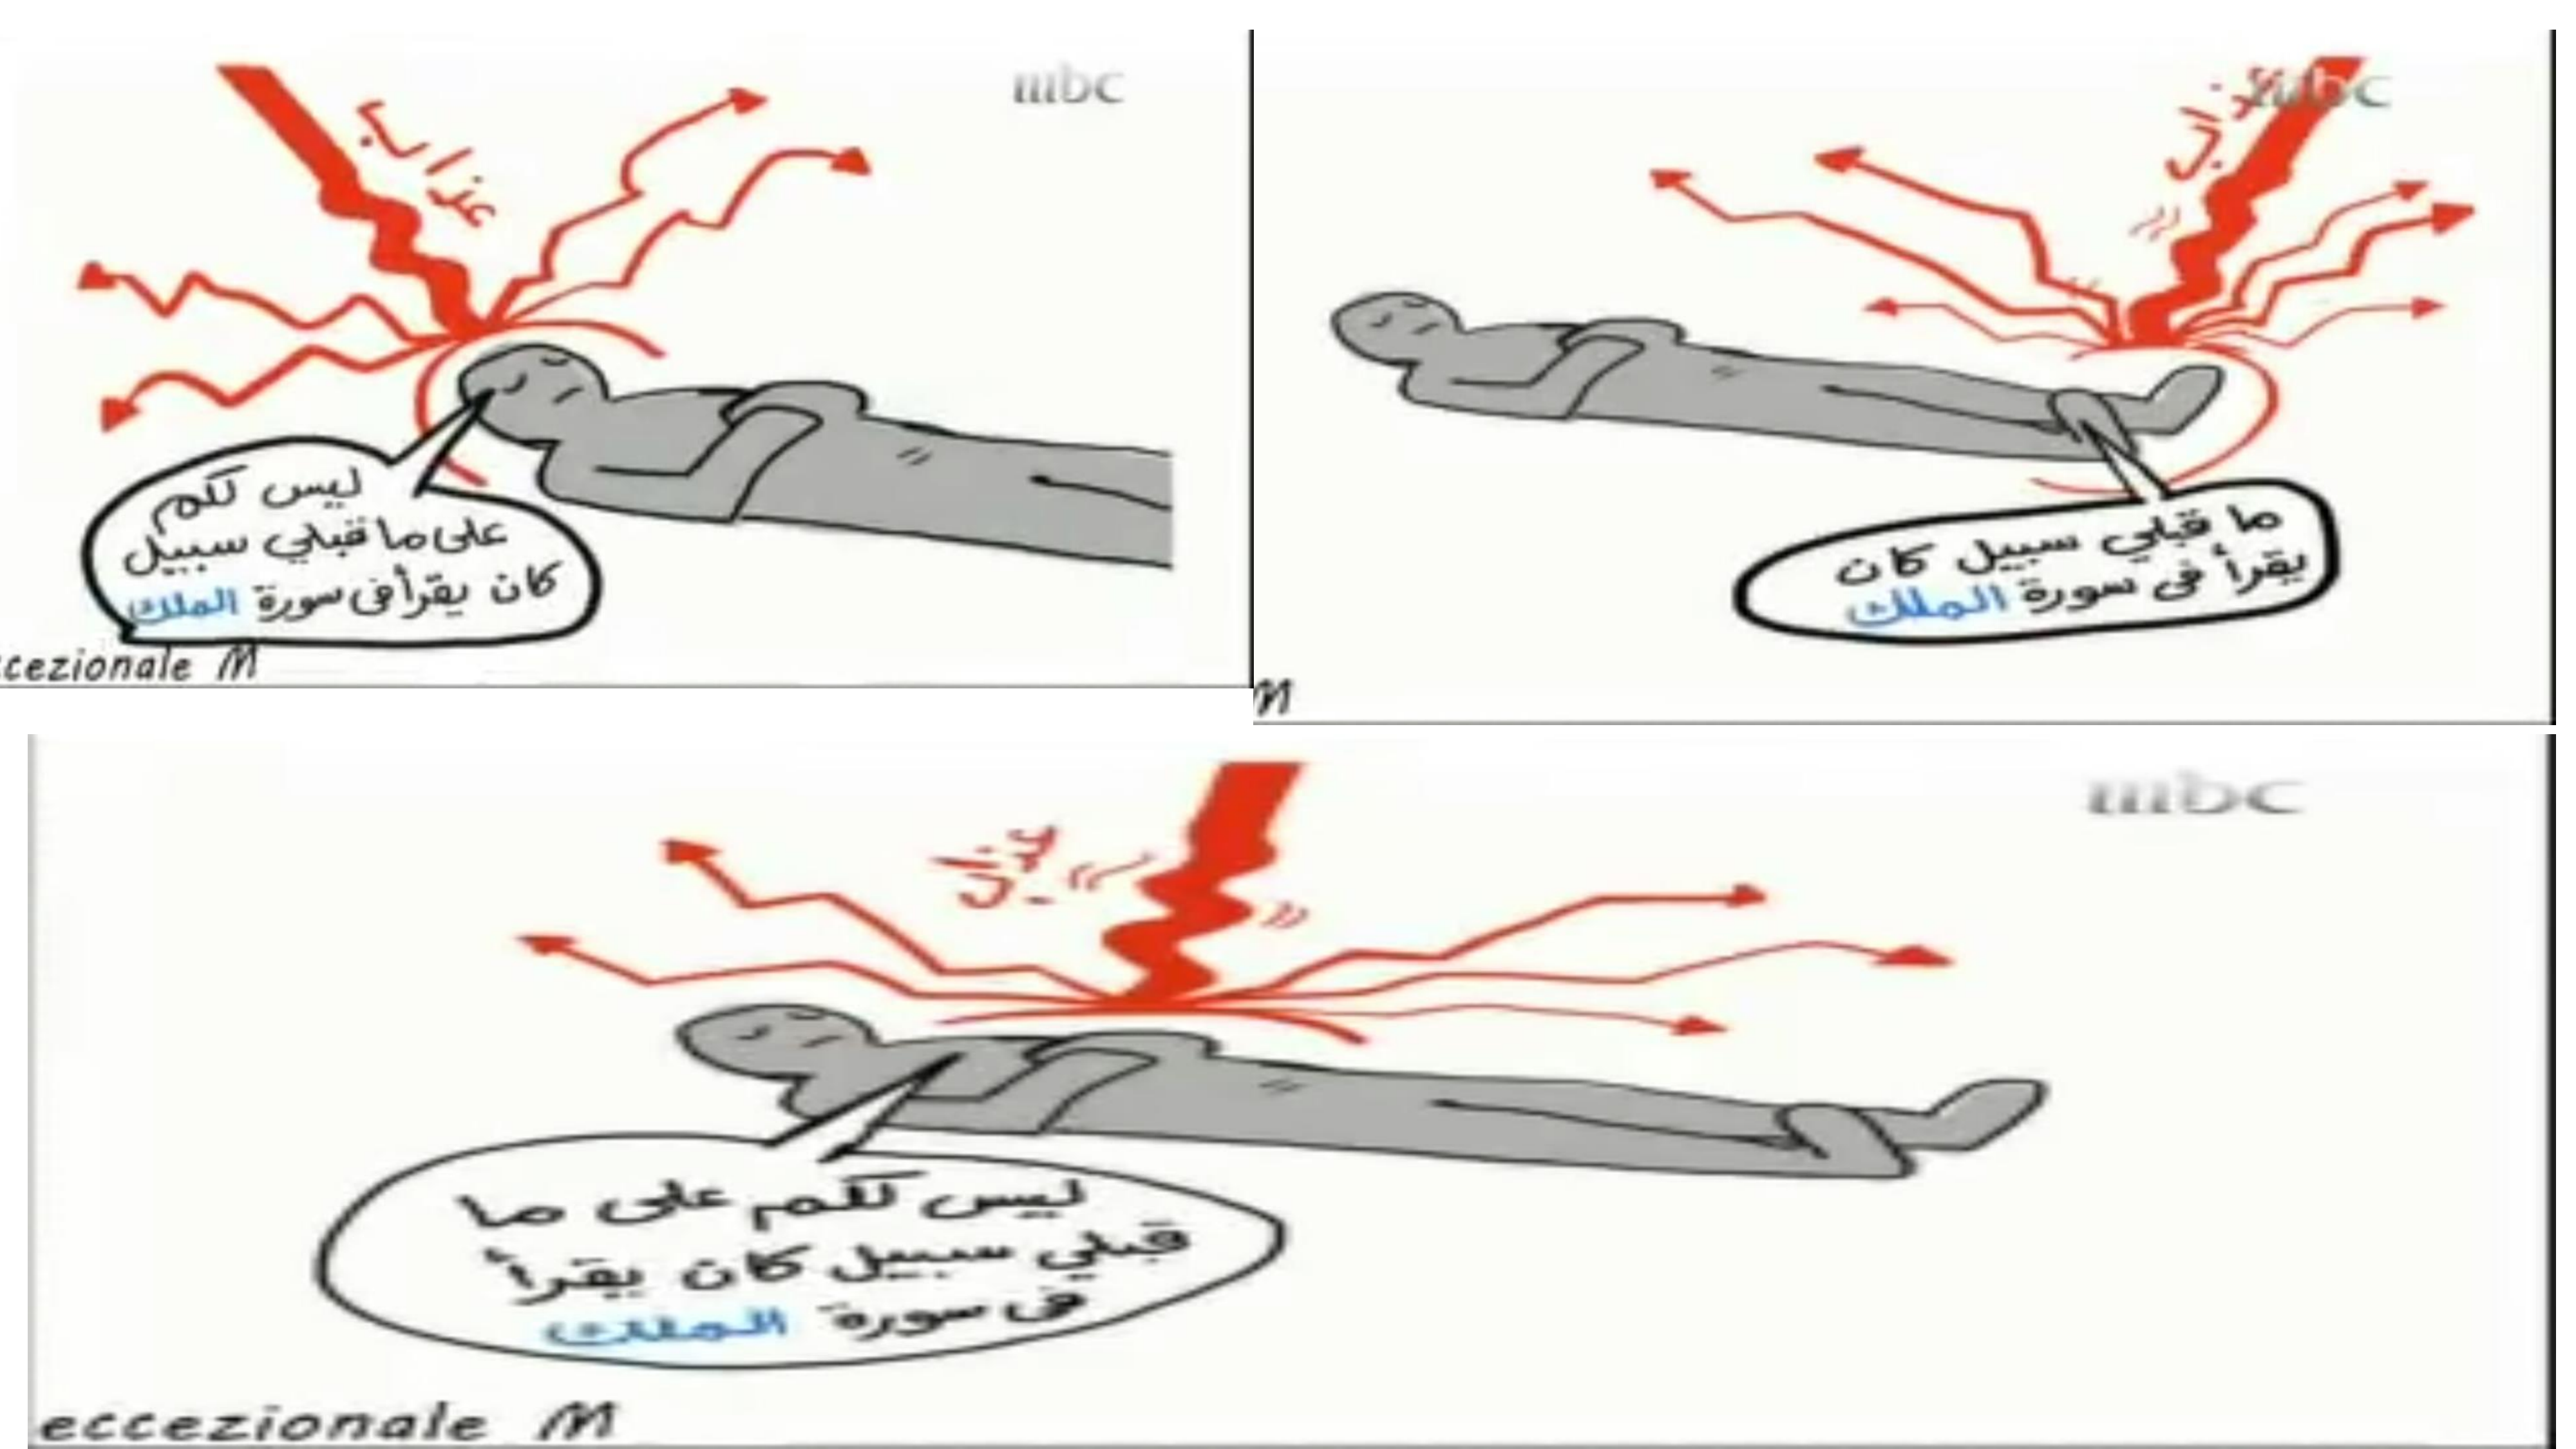 mbc
عذاب
ليس لكم
على ما قبلي سبيل
كان يقرأ فى سورة الملك
ccezionale M
mbc
عذاب
ما قبلي سبيل كان
يقرأ فى سورة الملك
M
mbc
عذاب
ليس لكم على ما
قبلي سبيل كان يقرأ
فى سورة الملك
eccezionale M